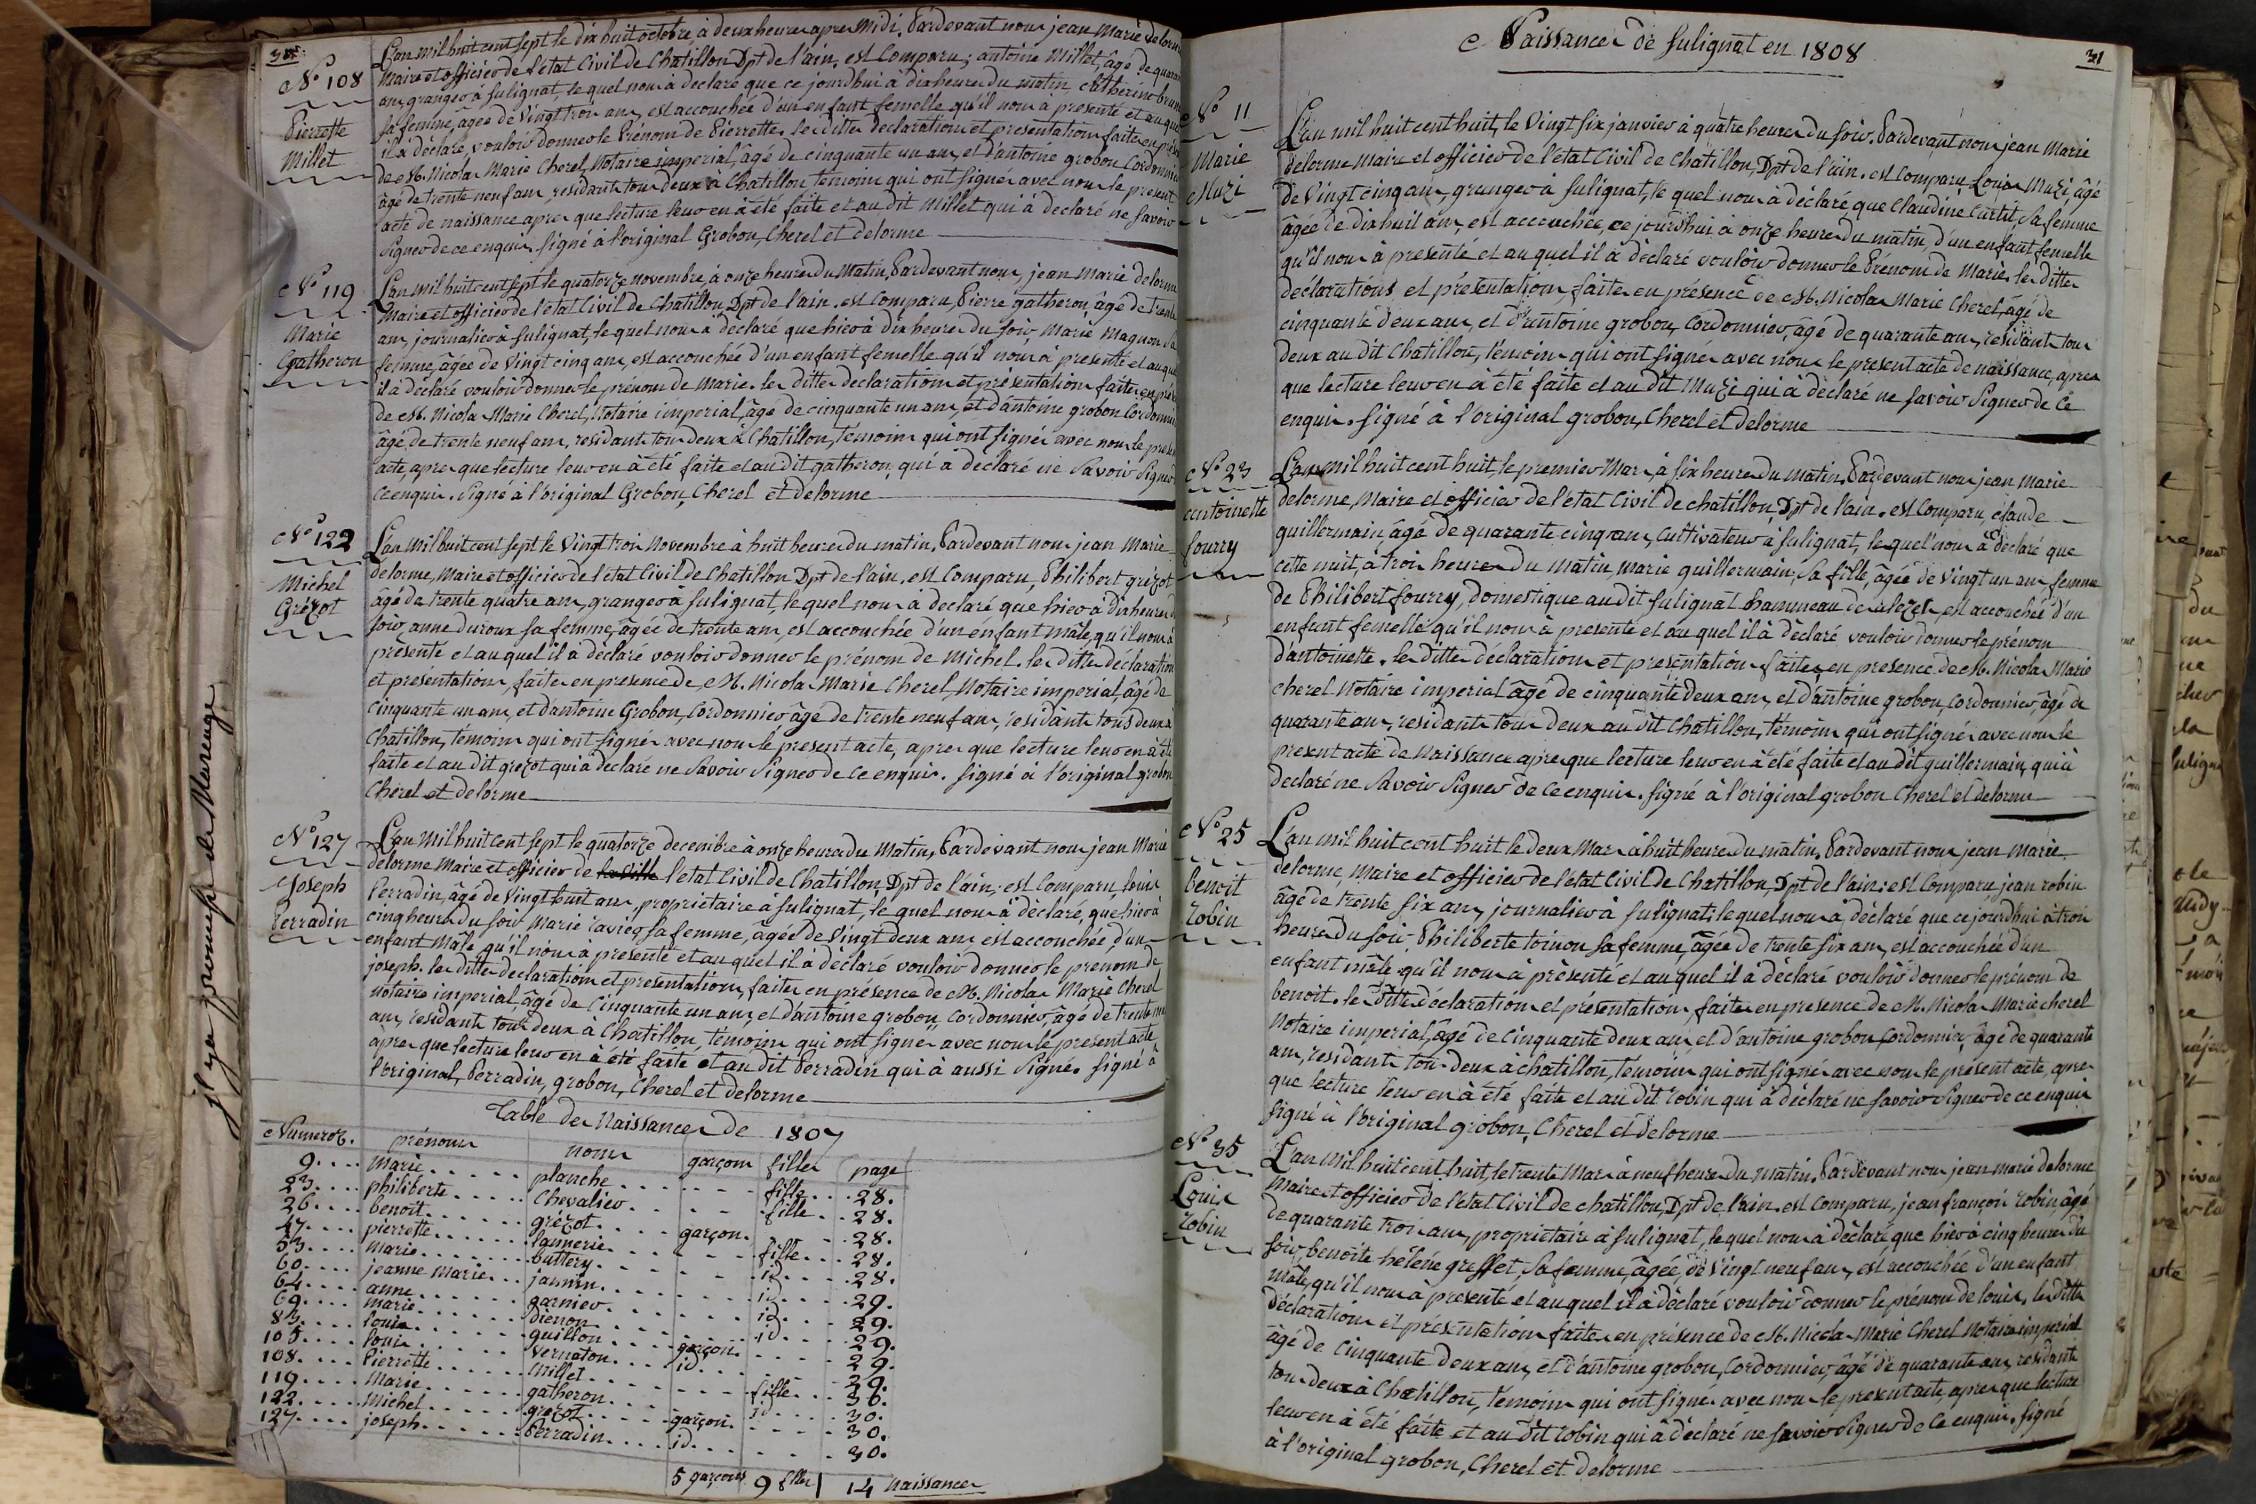 30.
N.° 108
Pierrette
Millet
L'an mil huit cent sept le dix huit octobre, à deux heures apres Midi, Pardevant nous jean Marie delorme
Maire et officier de l'état Civil de Chatillon Dpt de l'ain, est Comparu, antoine Millet, âgé de quarante
ans, granger à sulignat, le quel nous a declaré que ce jourd'hui à dix heures du matin, Catherine brun
sa femme, agée de Vingt trois ans, est accouchée d'un enfant femelle qu'il nous à presenté et au quel
il à déclaré, vouloir donner le Prénom de Pierrette. les dittes declaration et presentation faites en présence
de M. Nicolas Marie Cherel, Notaire imperial, âgé de cinquante un ans, et d'antoine grobon Cordonnier
âgé de trente neuf ans, residants tous deux à Chatillon, témoins qui ont signés avec nous le present
acte de naissance apres que lecture leur en à été faite et au dit Millet qui à declaré ne savoir
Signer de ce enquis. Signé à l'original Grobon, Cherel et delorme
N.° 119
Marie
Gatheron
L'an mil huit cent sept le quatorze novembre, à onze heures du Matin, Pardevant nous, jean Marie delorme
Maire et officier de l'état Civil de Chatillon, Dpt de l'ain. est Comparu, Pierre gatheron, âgé de trente
ans, journalier à sulignat, le quel nous a déclaré que hier à dix heures du soir, Marie Magnon sa
femme, âgée de Vingt cinq ans, est accouchée d'un enfant femelle qu'il nous à presenté et au quel
il à déclaré vouloir donner le prénom de Marie. les dittes declaration et présentation faites en présence
de M. Nicolas Marie Cherel, Notaire imperial, âgé de cinquante un ans, et d'antoine grobon Cordonnier
âgé de trente neuf ans, residants tous deux à Chatillon, témoins qui ont signés avec nous le present
acte, apres que lecture leur en à été faite et au dit gatheron, qui à déclaré ne Savoir Signer
Ce enquis. Signé à l'original Grobon, Cherel et delorme
N.° 122
Michel
Grézot
L'an Mil huit cent sept le Vingt trois Novembre à huit heures du matin, Pardevant nous jean Marie
delorme, Maire et officier de l'état Civil de Chatillon Dpt de l'ain, est Comparu, Philibert grézot
âgé de trente quatre ans, granger à sulignat, le quel nous à déclaré que hier à dix heures du
soir, anne duroux sa femme, âgée de trente ans, est accouchée d'un enfant mâle, qu'il nous à
présenté et au quel il a déclaré vouloir donner le prénom de Michel. les dittes déclaration
et présentation, faites en presence de M. Nicolas Marie Cherel, Notaire imperial, âgé de
cinquante un ans, et d'antoine Grobon, Cordonnier âgé de trente neuf ans, residants tous deux à
Chatillon, témoins qui ont signés avec nous le present acte, apres que lecture leur en à été
faite et au dit grezot qui à declaré ne Savoir Signer de ce enquis. Signé à l'original grobon
Cherel et delorme
N.° 127
Joseph
Perradin
L'an Mil huit cent sept le quatorze decembre à onze heures du Matin, Pardevant nous jean Marie
delorme Maire et officier de la ville l'état Civil de Chatillon Dpt de l'ain, est Comparu, louis
Perradin, âgé de Vingt huit ans, propriétaire à sulignat, le quel nous à déclaré, que hier à
cinq heures du soir Marie sa femme, âgée de Vingt deux ans est accouchée d'un
enfant Mâle, qu'il nous à presenté et au quel il à déclaré vouloir donner le prenom de
joseph. les dittes declaration et presentation, faites en présence de M. Nicolas Marie Cherel
Notaire imperial, âgé de Cinquante un ans, et d'antoine grobon, Cordonnier, âgé de trente neuf
ans, residants tous deux à Chatillon, témoins qui ont signés avec nous le present acte
apres que lecture leur en à été faite et au dit Perradin qui à aussi Signé. Signé à
l'original, Perradin, grobon, Cherel et delorme
Table des Naissances de 1807
Numeros. prénoms noms garçons filles page
9.... marie..... planche..... fille... 28.
23.... philiberte..... Chevalier..... fille.. 28.
26.... benoit..... grézot.... garçon. 28.
47.... pierrette..... lamerie..... fille... 28.
53.... marie..... buttery..... id.... 28.
60.... jeanne Marie... jasmin..... id.... 29.
64.... anne..... garnier..... id.... 29.
69.... marie..... dienon..... id.... 29.
83.... louis..... guillon..... garçon. 29.
105.... louis..... Vernaton.... id.... 29.
108.... Pierrette..... Millet..... fille... 30.
119.... Marie..... gatheron..... id.... 30.
122.... Michel..... grezot..... garçon. 30.
127.... joseph..... Perradin.... id.... 30.
5 garçons 9 filles 14 Naissances
il y a promesse de Mariage
Naissances de sulignat en 1808
31
N.° 11
Marie
Muzi
L'an mil huit cent huit, le Vingt six janvier à quatre heures du soir. Pardevant nous jean Marie
delorme Maire et officier de l'état Civil de Chatillon, Dpt de l'ain. est Comparu Louis Muzi, âgé
de Vingt cinq ans, granger à sulignat, le quel nous à déclaré que Claudine Curtil Sa femme
âgée de dix huit ans, est accouchée, ce jourd'hui à onze heures du matin, d'un enfant femelle
qu'il nous à presenté et au quel il à déclaré vouloir donner le Prénom de Marie. les dittes
déclarations et présentation, faites en présence de M. Nicolas Marie Cherel, âgé de
cinquante deux ans, et d'antoine grobon, Cordonnier, âgé de quarante ans, residants tous
deux au dit Chatillon, témoins qui ont signés avec nous le present acte de naissance, apres
que lecture leur en à été faite et au dit Muzi qui à déclaré ne savoir Signer de Ce
enquis. Signé à l'original grobon, Cherel et delorme
N.° 23
antoinette
fourry
L'an mil huit cent huit, le premier Mars, à six heures du matin, Pardevant nous jean Marie
delorme, Maire et officier de l'état Civil de chatillon, Dpt de l'ain. est Comparu, claude
guillermain, âgé de quarante cinq ans, Cultivateur à sulignat, le quel nous à déclaré que
cette nuit, à trois heures du matin, marie guillermain, Sa fille, âgée de Vingt un ans femme
de Philibert fourry, domestique au dit sulignat hammeau de est accouchée d'un
enfant femelle qu'il nous à presenté et au quel il à déclaré vouloir donner le prénom
d'antoinette. les dittes déclaration et presentation faites en presence de M. Nicolas Marie
cherel Notaire imperial âgé de cinquante deux ans, et d'antoine grobon, cordonnier, âgé de
quarante ans, residants tous deux au dit Chatillon, témoins qui ont signés avec nous le
present acte de Naissance apres que lecture leur en à été faite et au dit guillermain, qui à
declaré ne Savoir Signer de Ce enquis. Signé à l'original grobon Cherel et delorme
N.° 25
benoit
robin
L'an mil huit cent huit le deux Mars à huit heures du matin. Pardevant nous jean Marie
delorme, Maire et officier de l'état Civil de Chatillon, Dpt de l'ain. est Comparu, jean robin
âgé de trente six ans, journalier à sulignat, le quel nous à déclaré que ce jourd'hui à trois
heures du soir, Philiberte toinon sa femme, âgée de trente six ans, est accouchée d'un
enfant mâle qu'il nous à présenté et au quel il à déclaré vouloir donner le prénom de
benoit. les dittes déclaration et présentation, faites en presence de M. Nicolas Marie cherel
Notaire imperial, âgé de cinquante deux ans, et d'antoine grobon Cordonnier, âgé de quarante
ans, residants tous deux à chatillon, témoins qui ont signés avec nous le present acte, apres
que lecture leur en à été faite et au dit robin qui à déclaré ne savoir Signer de ce enquis
Signé à l'original grobon, Cherel et delorme
N.° 35
Louis
robin
L'an Mil huit cent huit, le trente Mars à neuf heures du Matin, Pardevant nous jean marie delorme
Maire et officier de l'état Civil de chatillon, Dpt de l'ain. est Comparu, jean françois robin, âgé
de quarante trois ans, propriétaire à sulignat, le quel nous à déclaré que hier à cinq heures du
soir, benoite héléne greffet, Sa femme, âgée, de Vingt neuf ans, est accouchée d'un enfant
mâle, qu'il nous à presenté et au quel il à déclaré vouloir donner le prénom de louis. les dittes
déclaration et présentation faites en présence de M. Nicolas Marie Cherel Notaire imperial
âgé de Cinquante deux ans, et d'antoine grobon, Cordonnier, âgé de quarante ans, residants
tous deux à Chatillon, témoins qui ont signés avec nous le present acte, apres que lecture
leur en à été faite et au dit robin qui à déclaré ne savoir Signer de Ce enquis. Signé
à l'original grobon, Cherel et delorme